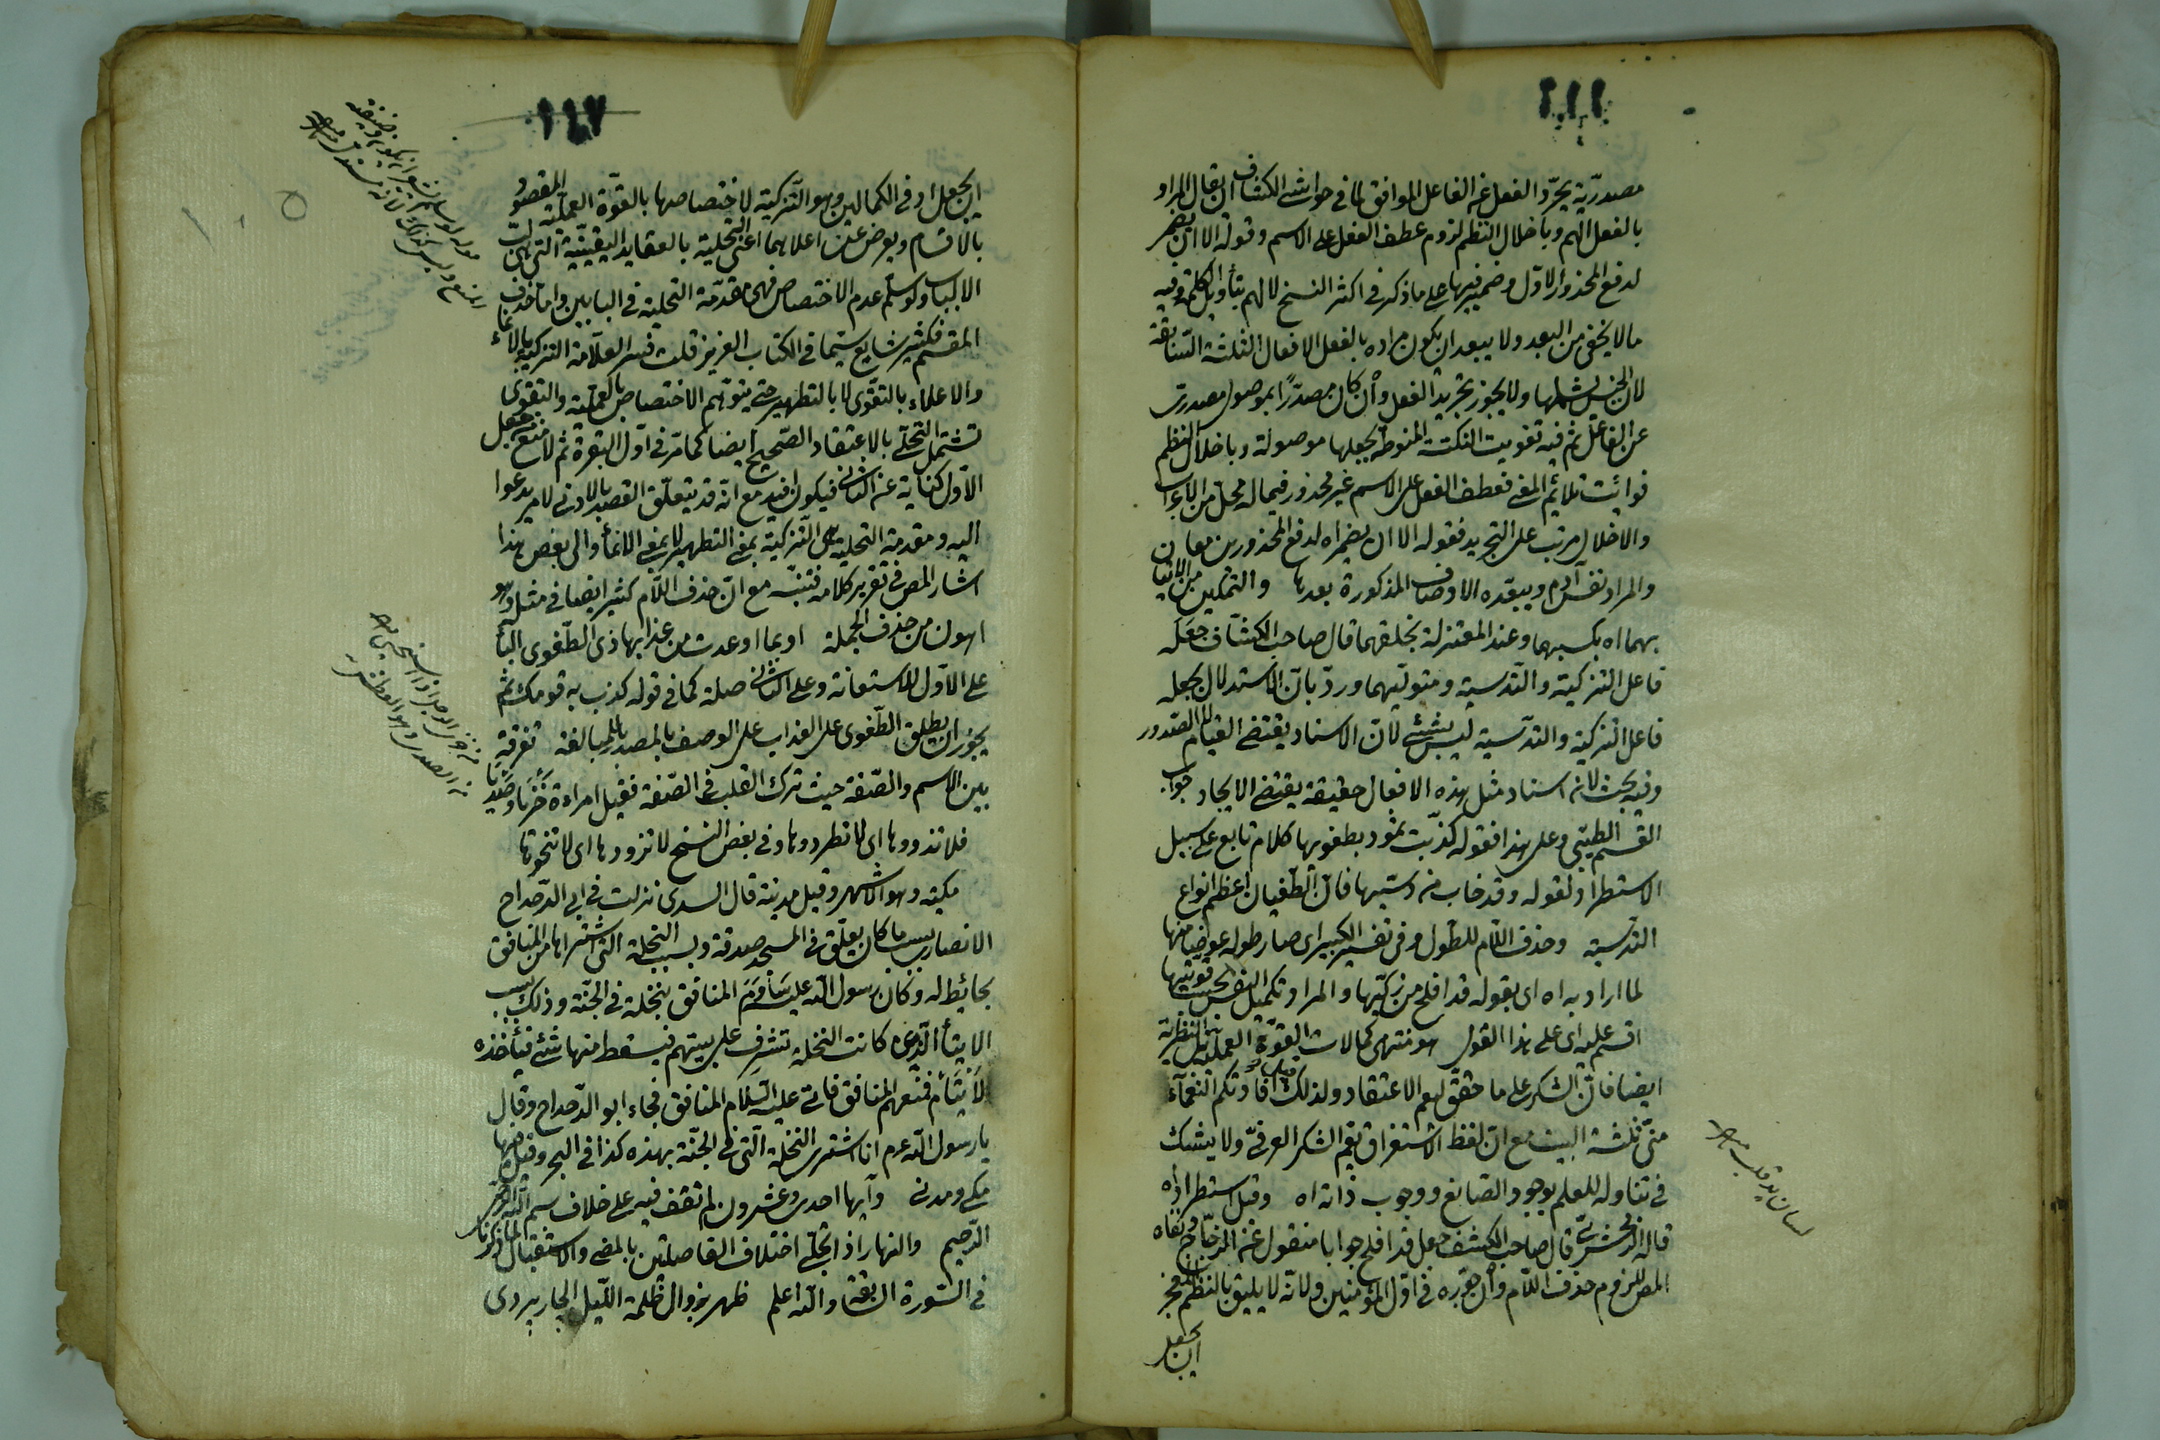 مصدرية يجرّد الفعل عن الفاعل الموافق لما في حواشي الكشاف ان يقال المراد
بالفعل الهم وباخلال النظم لزوم عطف الفعل على الاسم وقوله الا ان يضمر
لدفع المحذور الاول وضمير فيها على ما ذكر في اكثر النسخ لالهم بتأويل الكلمة وفيه
مالا يخفى من البعد ولا يبعد ان يكون مراده بالفعل الافعال الثلثة السابقة
لان الجنس يشملها ولا يجوز تجريد الفعل وان كان مصدرًا بموصول مصدرى
عن الفاعل ثم فيه تفويت النكتة المنوطة بجعلها موصولة وباخلال النظم
فوائت تلائم المعنى فعطف الفعل على الاسم غير محذور فيما له محل من الاعراب
والاخلال مرتب على التجريد فقوله الا ان يضمر اه لدفع المحذورين معا
والمراد نفس آدم ويبعّده الاوصاف المذكورة بعدها والتمكين من الاتيان
بهما اه بكسبهما وعند المعتزلة بخلقهما قال صاحب الكشاف جعله
فاعل التزكية والتدسية ومتوليهما وردّ بان الاستدلال بجعله
فاعل التزكية والتدسية ليس بشئ لان الاسناد يقتضى القيام لا الصدور
وفيه بحث لانه اسناد مثل هذه الافعال حقيقة يقتضى الايجاد جواب
القسم الطيبي وعلى هذا فقوله كذبت ثمود بطغويها كلام تابع على سبيل
الاستطراد لقوله وقد خاب من دسيها فان الطغيان اعظم انواع
التدسية وحذف اللام للطول وفى تفسير الكبير اى صار طوله عوضا منها
لما اراد به اه اى بقوله قد افلح من زكيها والمراد تكميل النفس بحسب قوتيها
اقسم عليه اى على هذا القول هو منتهى كمالات القوة العملية بل النظرية
ايضا فان الشكر على ما حقق يعم الاعتقاد ولذلك قيل افادتكم النعمآء
منّى ثلثة البيت مع ان لفظ الاستغراق يعم الشكر العرفىّ ولا يشك
فى تناوله للعلم بوجود الصانع ووجوب ذاته اه وقيل استطراد اه
قاله الزمخشرى قال صاحب الكشف جعل قد افلح جوابا منقول عن الزجاج ونفاه
المص للزوم حذف اللام وان جوّزه فى اوّل المؤمنين ولانه لا يليق بالنظم المعجز
ان يجعل
لسان يد قلب منه
ان يجعل ادنى الكمالين وهو التزكية لاختصاصها بالقوّة العملية المقصود
بالاقسام ويعرض عن اعلاهما اعنى التحلية بالعقايد اليقينية التى هى لب
الالباب ولو سلم عدم الاختصاص فهى مقدمة التحلية فى البابين واما حذف
المقسم فكثير شايع سيما فى الكتاب العزيز قلت فسر العلّامة التزكية بالانماء
والاعلاء بالتقوى لا بالتطهير حتى يتوهم الاختصاص بالعملية والتقوى
تشتمل التحلّى بالاعتقاد الصحيح ايضا كما مرّ فى اوّل البقرة ثم لا منع جعل
الاوّل كناية عن الثانى فيكون افيد مع انه قد يتعلّق القصد بالادنى لامر يدعوا
اليه ومقدمة التحلية هى التزكية بمعنى التطهير لا بمعنى الانماء والى بعض هذا
اشار المص فى تقرير كلامه فتنبه مع ان حذف اللام كثير ايضا فى مثله وهو
اهون من حذف الجملة او بما اوعدت من عذابها ذى الطغوى الباء
على الاوّل للاستعانة وعلى الثانى صلة كما فى قوله كذب به قومك ثم
يجوز ان يطلق الطّغوى على العذاب على الوصف بالمصدر للمبالغة تفرقة
بين الاسم والصّفة حيث ترك القلب فى الصّفة فقيل امراءة خزيا وصديا
فلا تذودوها اى لا تطردوها وفى بعض النسخ لا تزودها اى لا تنحوها
مكية وهو الاشهر وقيل مدنية قال السدى نزلت فى ابى الدحداح
الانصارى بسبب ما كان يعلّق فى المسجد صدقة وبسبب النخلة التى اشتراها من المنافق
بحائط له وكان رسول الله عليه ساوم المنافق بنخلة فى الجنّة وذلك بسبب
الايتام الذى كانت النخلة تشرف على بيتهم فيسقط منها شئ فيأخذه
لايتام فمنعهم المنافق فابى عليه السلام المنافق فجاء ابو الدحداح وقال
يا رسول الله عم انا اشترى النخلة التى فى الجنّة بهذه كذا فى البحر وقيل بعضها
مكى ومدنى وآيها احدى وعشرون لم نقف فيه على خلاف بسم الله الرحمن
الرّحيم والنهار اذا تجلّى اختلاف الفاصلتين بالمضى والاستقبال لما ذكرنا
فى السّورة السابقة والله اعلم ظهر بزوال ظلمة اللّيل الجاربردى